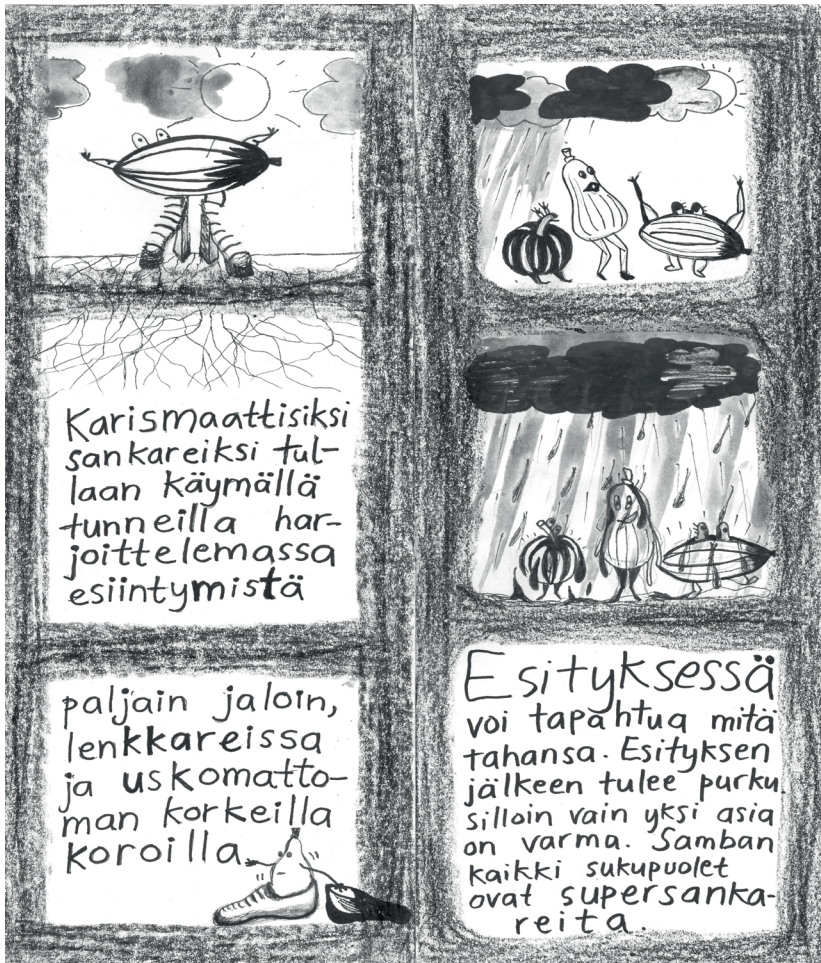 Karismaattisiksi
sankareiksi tul-
laan käymällä
tunneilla har-
joittelemassa
esiintymistä
paljain jaloin,
lenkkareissa
ja uskomatto-
man korkeilla
koroilla
Esityksessä
voi tapahtua mitä
tahansa. Esityksen
jälkeen tulee purku
silloin vain yksi asia
on varma. Samban
kaikki sukupuolet
ovat supersanka-
reita.